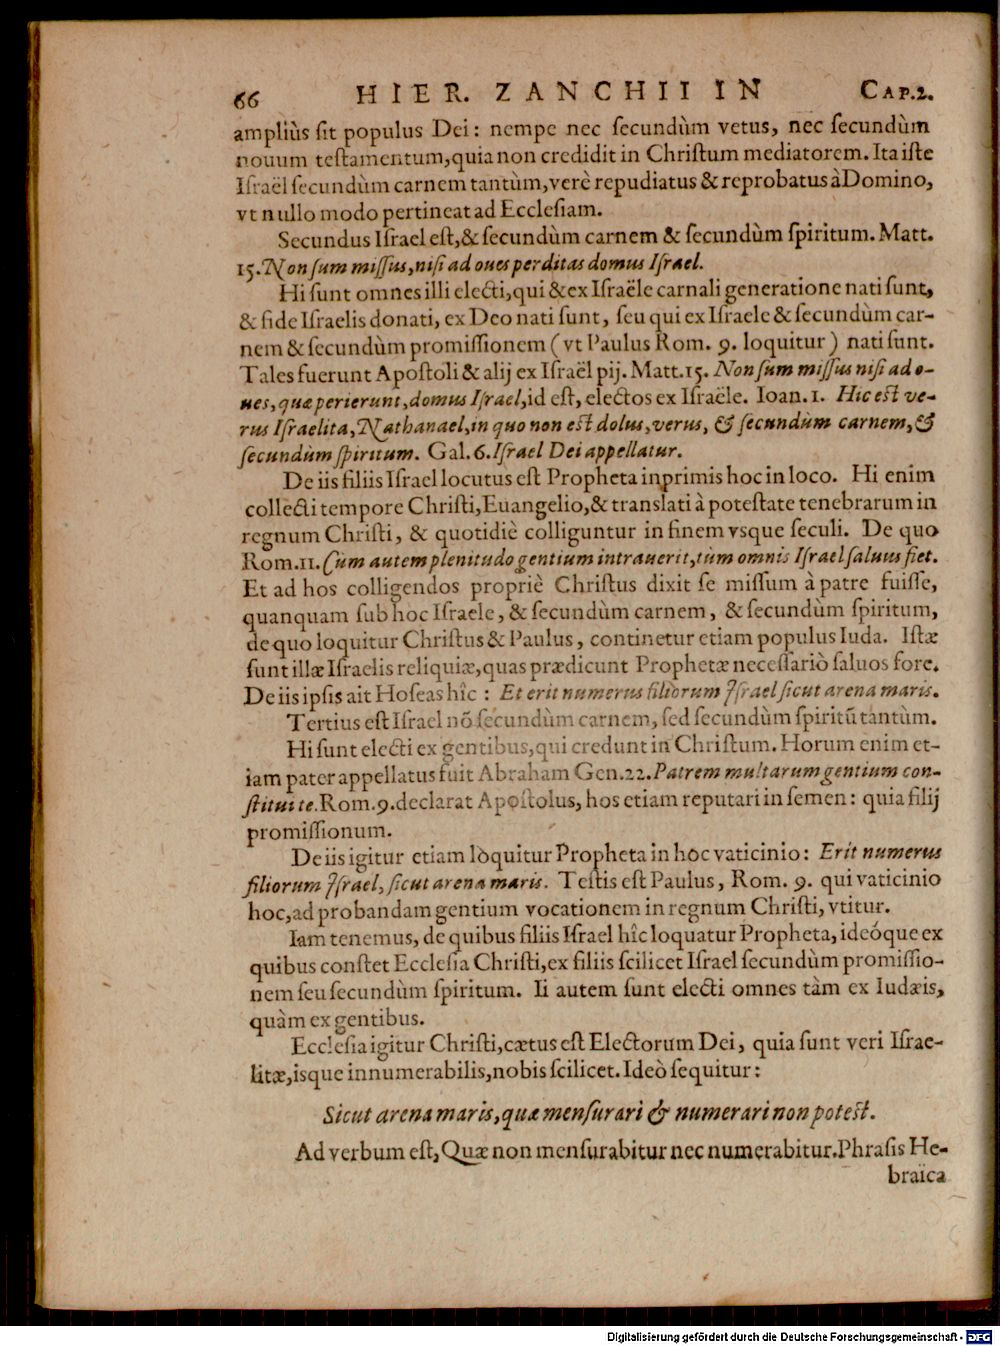 66 HIER. ZANCHII IN CAP.2.
ampliùs ſit populus Dei: nempe nec ſecundùm vetus, nec ſecundùm
nouum teſtamentum, quia non credidit in Chriſtum mediatorem. Ita iſte
Iſraël ſecundùm carnem tantùm, verè repudiatus & reprobatus à Domino,
vt nullo modo pertineat ad Eccleſiam.
Secundus Iſrael eſt, & ſecundùm carnem & ſecundùm ſpiritum. Matt.
15. Non ſum miſſus, niſi ad oues perditas domus Iſrael.
Hi ſunt omnes illi electi, qui & ex Iſraële carnali generatione nati ſunt,
& fide Iſraelis donati, ex Deo nati ſunt, ſeu qui ex Iſraele & ſecundùm car-
nem & ſecundùm promiſſionem (vt Paulus Rom. 9. loquitur) nati ſunt.
Tales fuerunt Apoſtoli & alij ex Iſraël pij. Matt. 15. Non ſum miſſus niſi ad o-
ues, quæ perierunt, domus Iſrael, id eſt, electos ex Iſraële. Ioan. 1. Hic est ve-
rus Iſraelita, Nathanael, in quo non est dolus, verus, & ſecundùm carnem, &
ſecundùm ſpiritum. Gal. 6. Iſrael Dei appellatur.
De iis filiis Iſrael locutus eſt Propheta inprimis hoc in loco. Hi enim
collecti tempore Chriſti, Euangelio, & translati à poteſtate tenebrarum in
regnum Chriſti, & quotidiè colliguntur in finem vsque ſeculi. De quo
Rom. 11. Cùm autem plenitudo gentium intrauerit, tùm omnis Iſrael ſaluus fiet.
Et ad hos colligendos propriè Chriſtus dixit ſe miſſum à patre fuiſſe,
quanquam ſub hoc Iſraele, & ſecundùm carnem, & ſecundùm ſpiritum,
de quo loquitur Chriſtus & Paulus, continetur etiam populus Iuda. Iſtæ
ſunt illæ Iſraelis reliquiæ, quas prædicunt Prophetæ neceſſariò ſaluos fore.
De iis ipſis ait Hoſeas hîc: Et erit numerus filiorum Iſrael ſicut arena maris.
Tertius eſt Iſrael nõ ſecundùm carnem, ſed ſecundùm ſpiritũ tantùm.
Hi ſunt electi ex gentibus, qui credunt in Chriſtum. Horum enim et-
iam pater appellatus fuit Abraham Gen. 22. Patrem multarum gentium con-
ſtitui te. Rom. 9. declarat Apoſtolus, hos etiam reputari in ſemen: quia filij
promiſſionum.
De iis igitur etiam loquitur Propheta in hoc vaticinio: Erit numerus
filiorum Iſrael, ſicut arena maris. Teſtis eſt Paulus, Rom. 9. qui vaticinio
hoc, ad probandam gentium vocationem in regnum Chriſti, vtitur.
Iam tenemus, de quibus filiis Iſrael hîc loquatur Propheta, ideóque ex
quibus conſtet Eccleſia Chriſti, ex filiis ſcilicet Iſrael ſecundùm promiſſio-
nem ſeu ſecundùm ſpiritum. Ii autem ſunt electi omnes tàm ex Iudæis,
quàm ex gentibus.
Eccleſia igitur Chriſti, cætus eſt Electorum Dei, quia ſunt veri Iſrae-
litæ, isque innumerabilis, nobis ſcilicet. Ideò ſequitur:
Sicut arena maris, quæ menſurari & numerari non potest.
Ad verbum eſt, Quæ non menſurabitur nec numerabitur. Phraſis He-
braïca
Digitalisierung gefördert durch die Deutsche Forschungsgemeinschaft - DFG